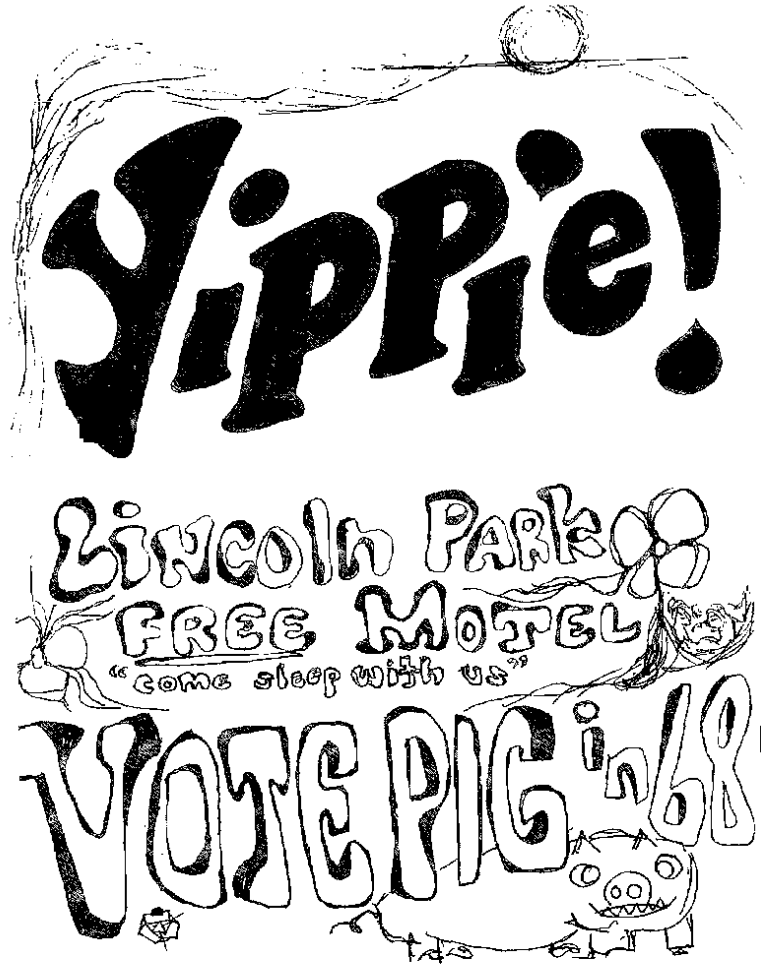 Yippie!
LiNColn PARK
FREE MOTEL
"come sleep with us"
VOTE PIG in 68